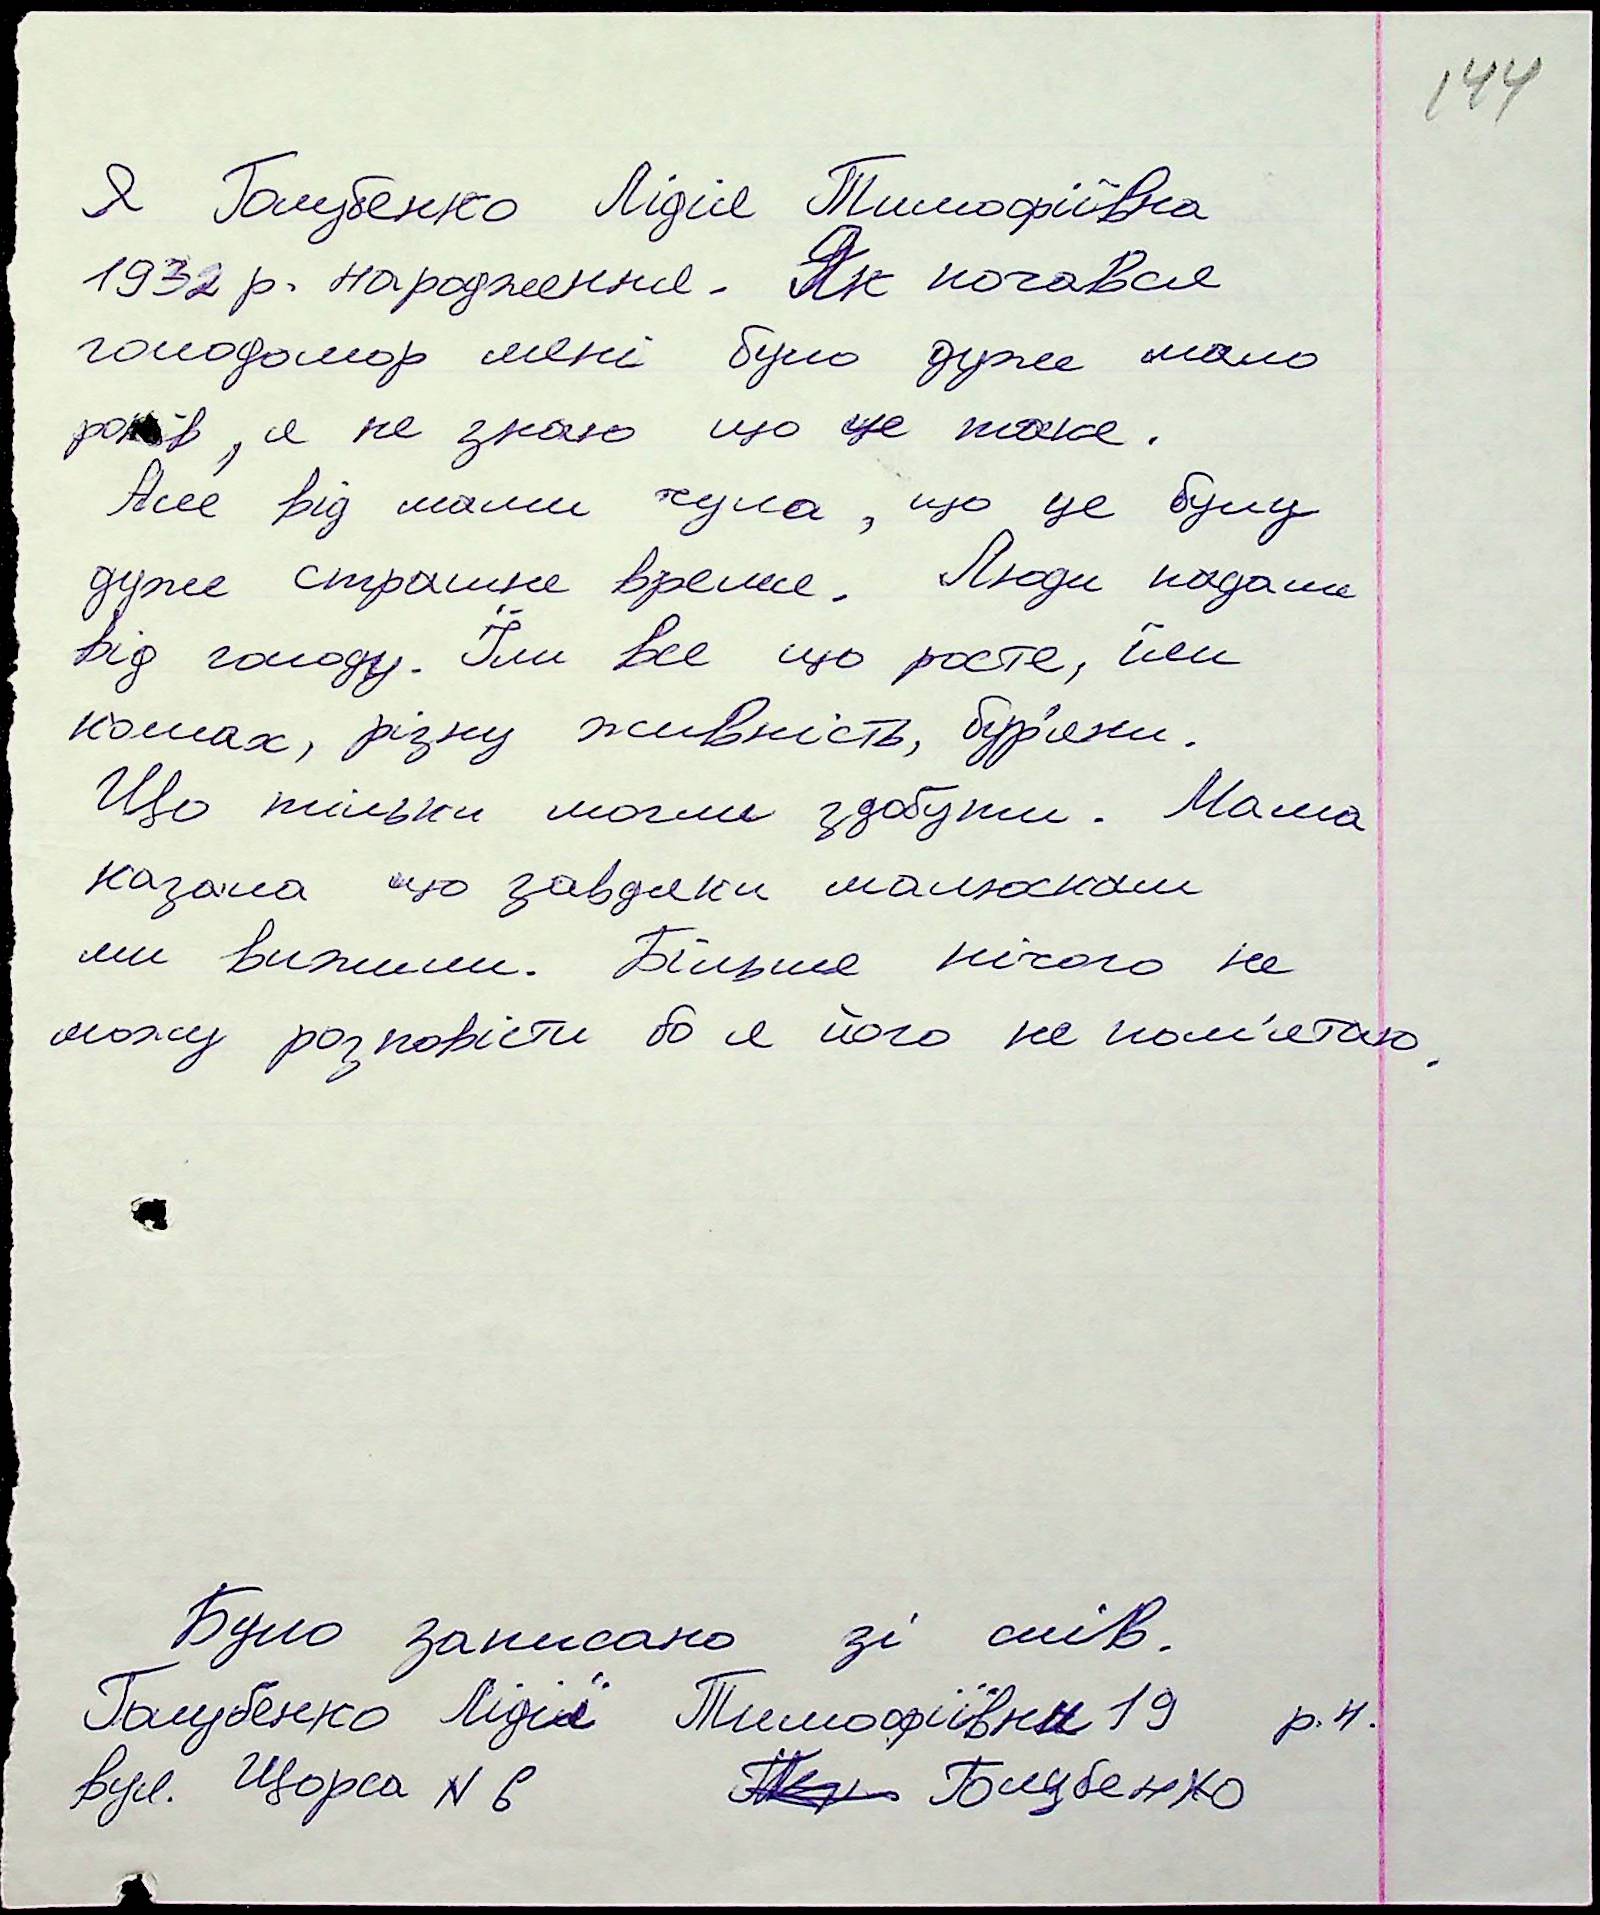 144
Я Голубенко Лідія Тимофіївна
1932 р. народження. Як почався
голодомор мені було дуже мало
років, я не знаю що це таке.
Але від мами чула, що це булу
дуже страшне времє. Люди падали
від голоду. Їли все що росте, їли
комах, різну живність, бур'яни.
Що тільки могли здобути. Мама
казала що завдяки малюскам
ми вижили. Більше нічого не
можу розповісти бо я його не пам'ятаю.
Було записано зі слів.
Голубенко Лідії Тимофіївни 19 р.н.
вул. Щорса N 6 Голубенко